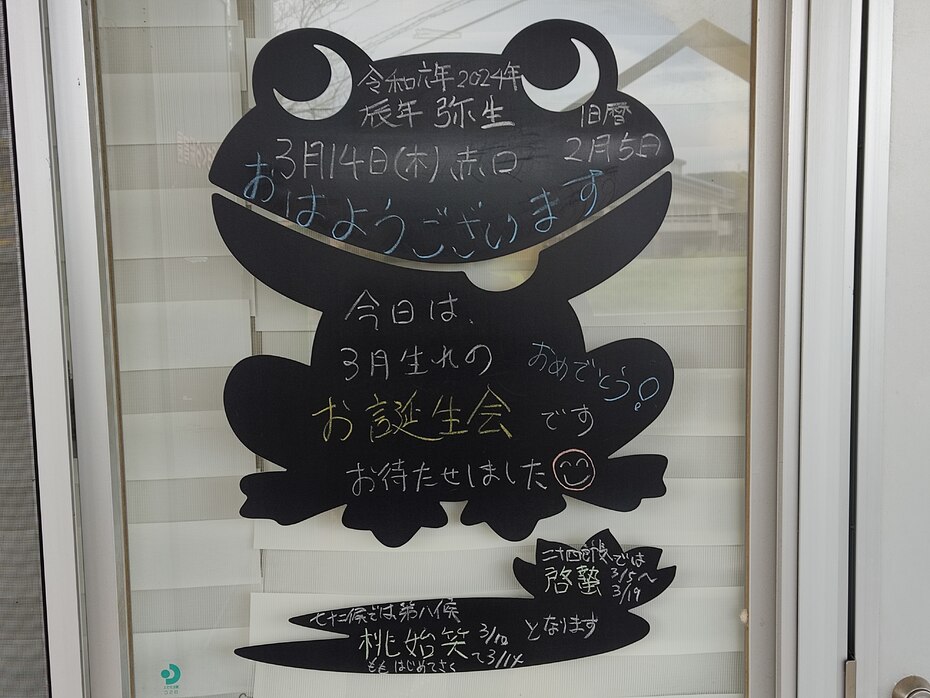 令和六年2024年
辰年 弥生
旧暦
2月5日
3月14日(木)赤口
おはようございます
今日は、
3月生れの
おめでとう!
お誕生会 です
お待たせしました
二十四節気では
啓蟄 3/5〜
3/19
七十二候では第八候
桃始笑 3/10
〜3/14
となります
ももはじめてさく